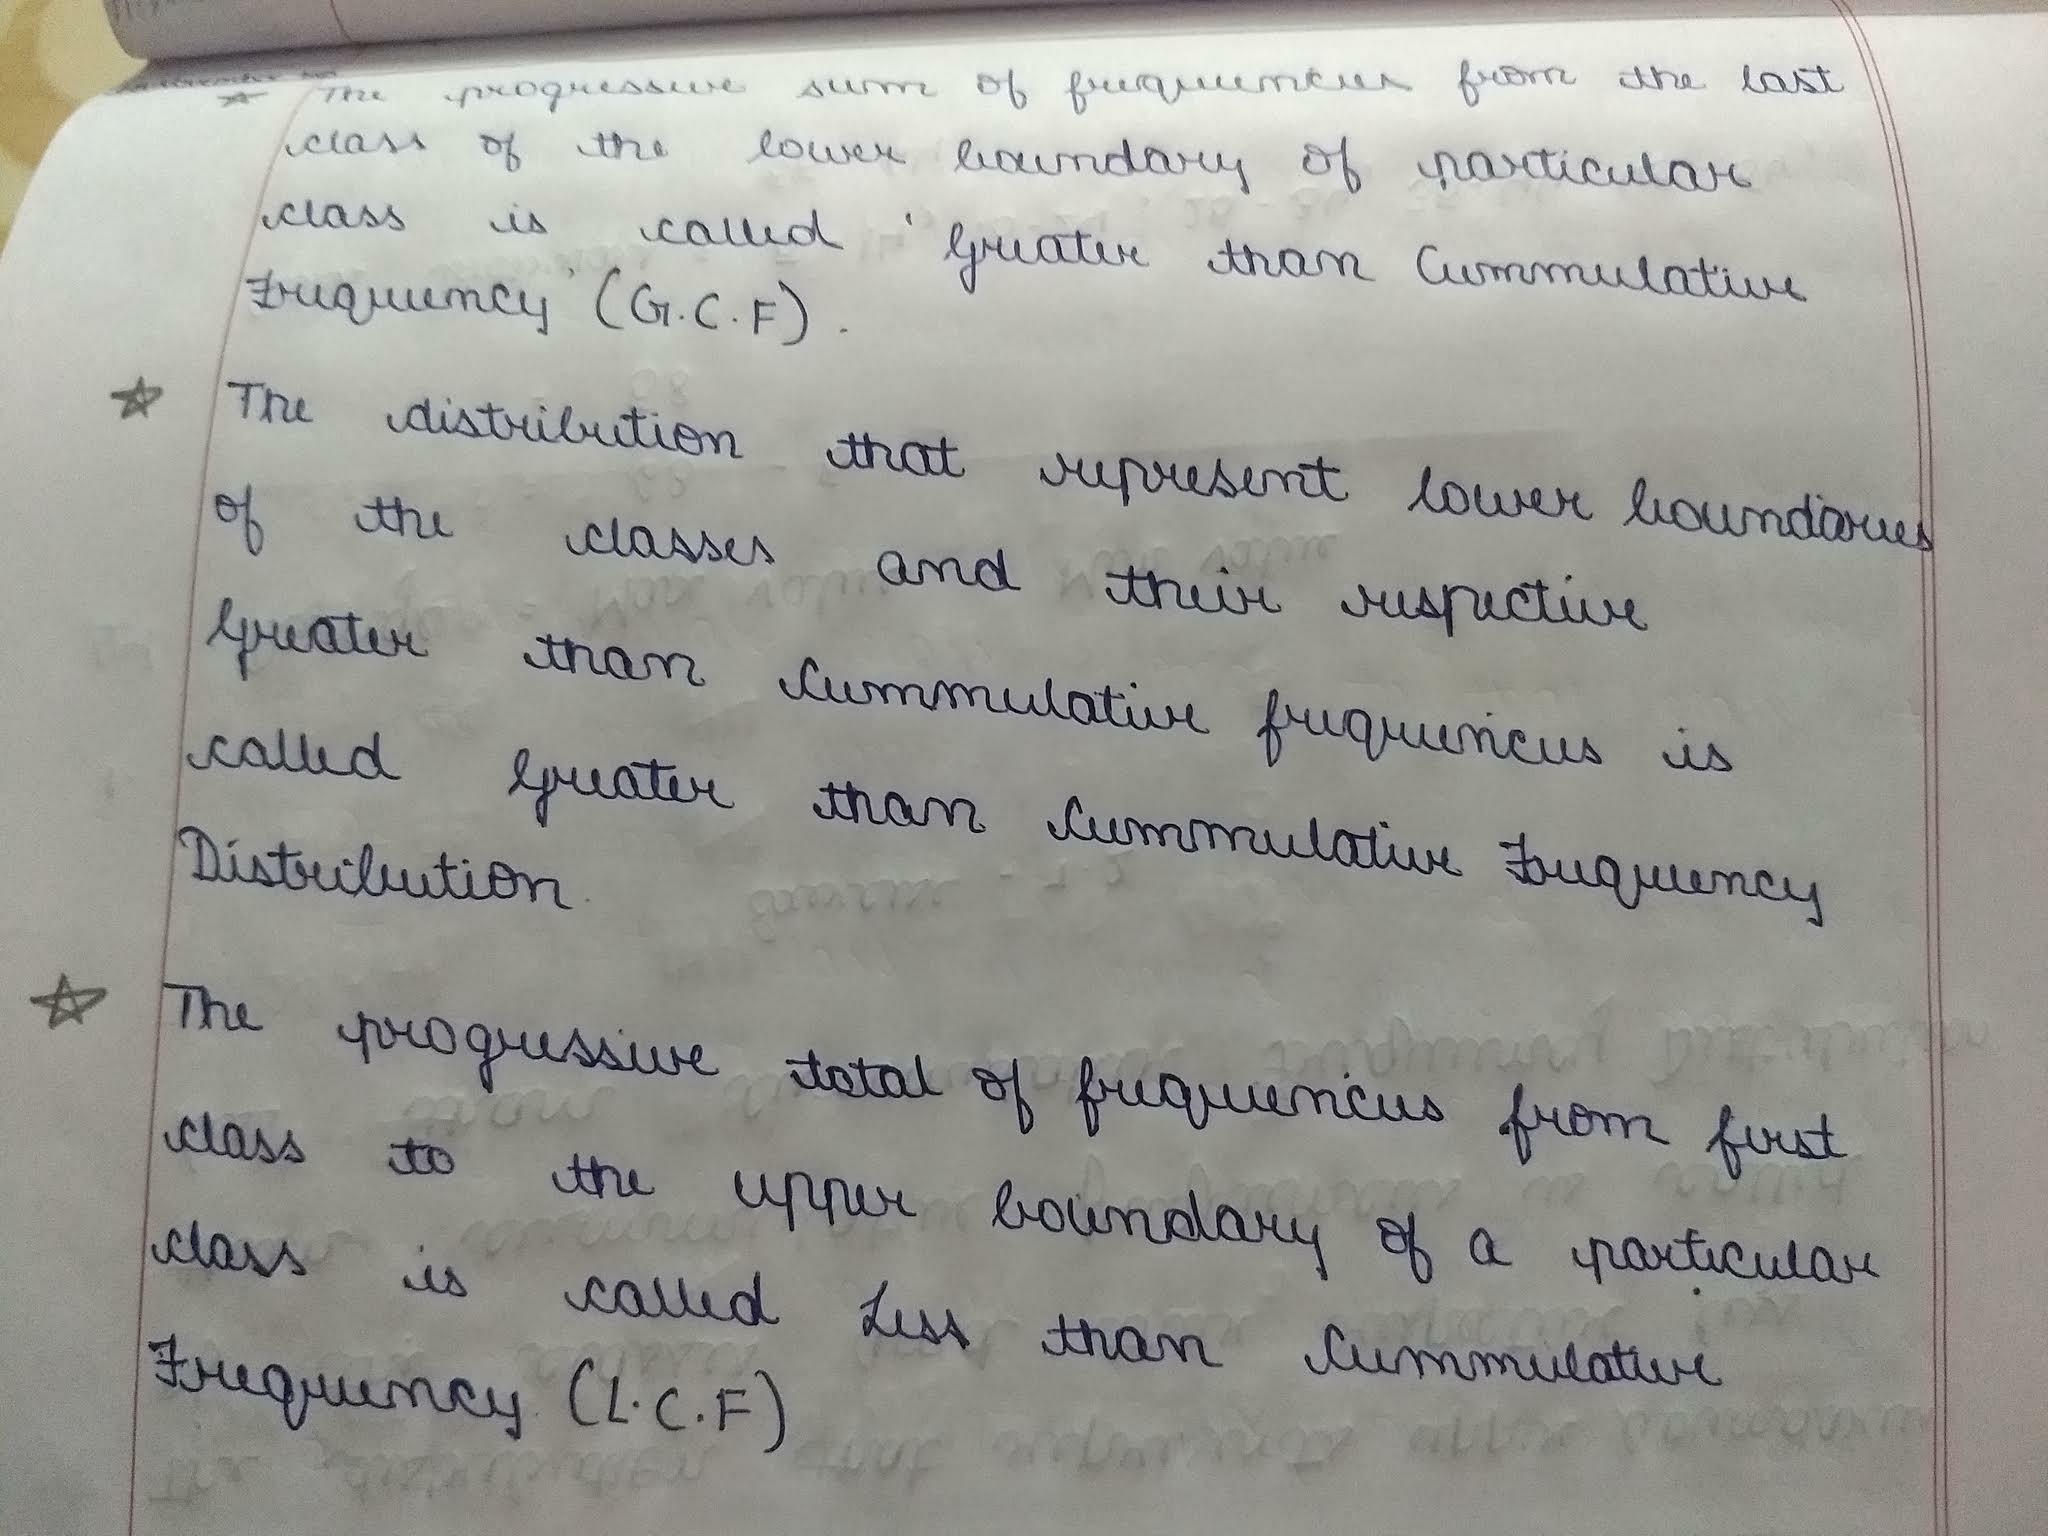 ☆ The progressive sum of frequencies from the last
class of the lower boundary of particular
class is called 'Greater than Cummulative
Frequency' (G.C.F).
☆ The distribution that represent lower boundaries
of the classes and their respective
Greater than Cummulative frequencies is
called Greater than Cummulative Frequency
Distribution.
☆ The progressive total of frequencies from first
class to the upper boundary of a particular
class is called Less than Cummulative
Frequency (L.C.F)